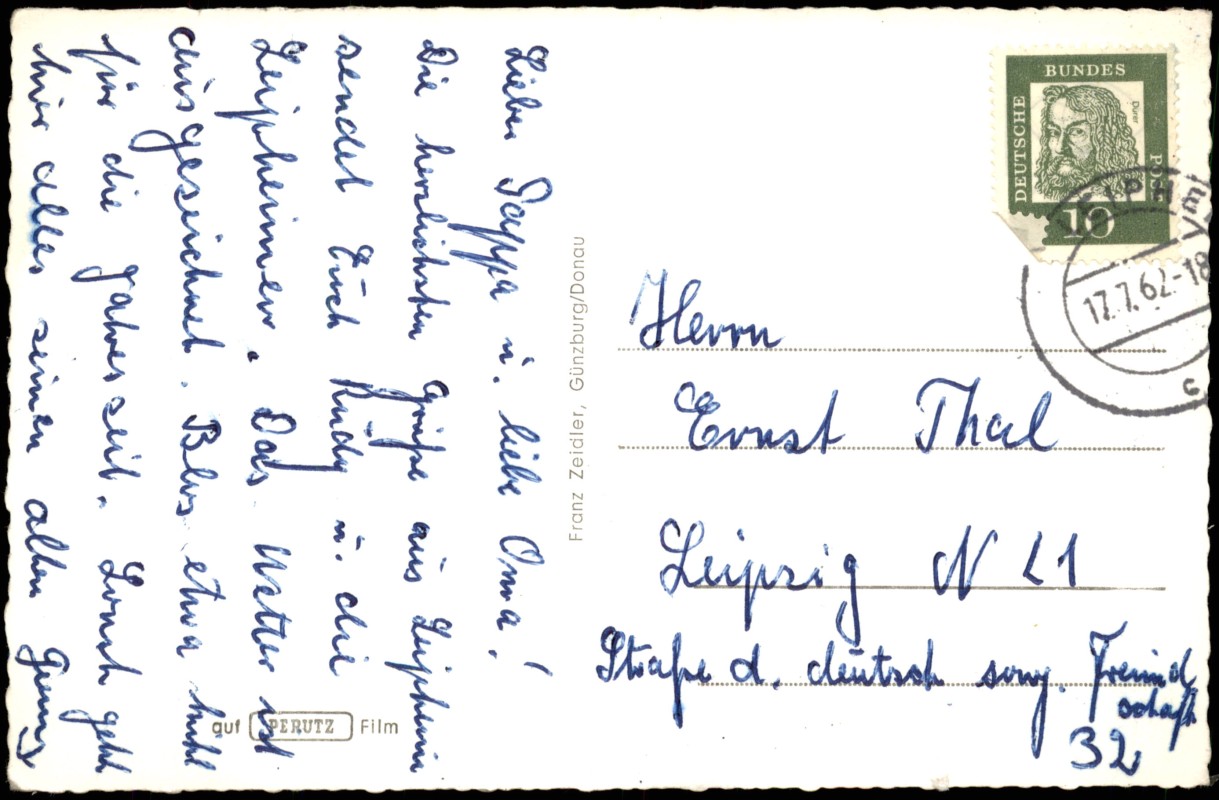 Lieber Pappa u. liebe Oma!
Die herzlichsten Grüße aus Leipheim
sendet Euch Rudy u. die
Leipheimer. Das Wetter ist
ausgezeichnet. Blos etwa kühl
für die Jahreszeit. Sonst geht
hier alles seinen alten
Franz Zeidler, Günzburg/Donau
auf PERUTZ Film
DEUTSCHE BUNDES POST
Dürer
10
17.7.62-18
c
Herrn
Ernst Thal
Leipzig N 21
Straße d. deutsch sowj. Freund
schaft
32